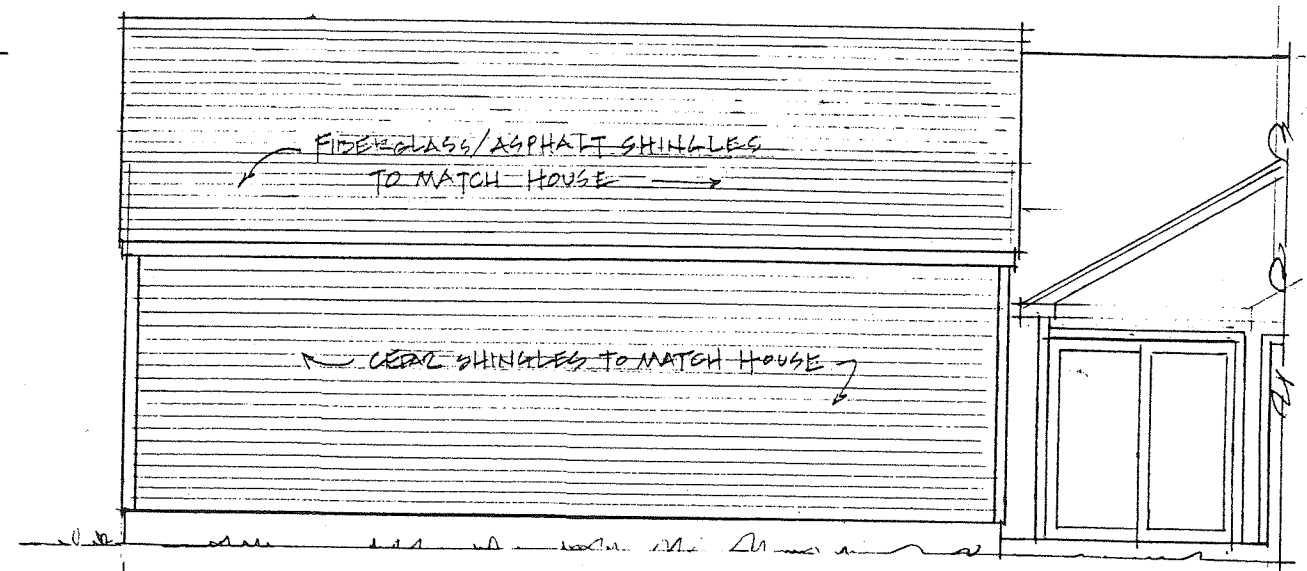 FIBERGLASS/ASPHALT SHINGLES
TO MATCH HOUSE
CEDAR SHINGLES TO MATCH HOUSE